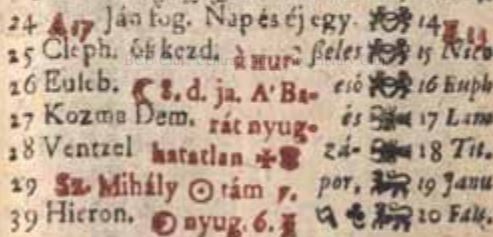 24 Ján fog. Nap és éj egy. 14
25 Cleph. ősz kezd. à nur- ßeles 15 Nico
26 Euseb. 8. d. ja. A' Ba- eső 16 Euph
27 Kozma Dem. rát nyug- és 17 Lam
28 Ventzel hatatlan zá- 18 Tit.
29 Sz. Mihály ☉ rám por, 19 Janu
39 Hieron. nyug. 6. 20 Faus.